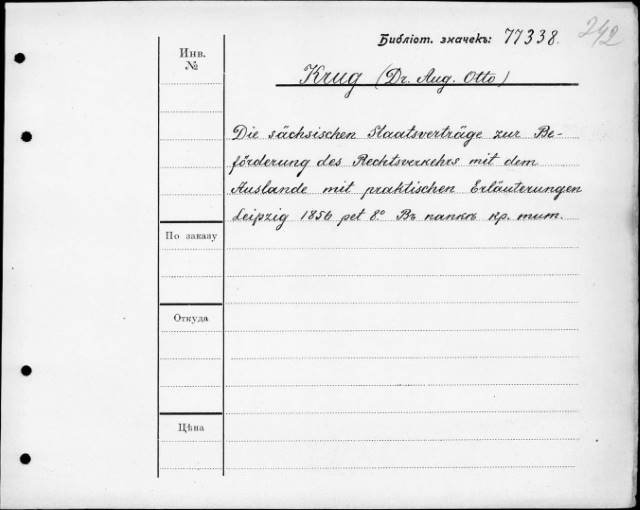 Библіот. значекъ: 77338.
242
Инв.
№
Krug (Dr. Aug. Otto)
Die sächsischen Staatsverträge zur Be-
förderung des Rechtsverkehrs mit dem
Auslande mit praktischen Erläuterungen
Leipzig 1856 pet 8.° Въ папкѣ кр. тит.
По заказу
Откуда
Цѣна